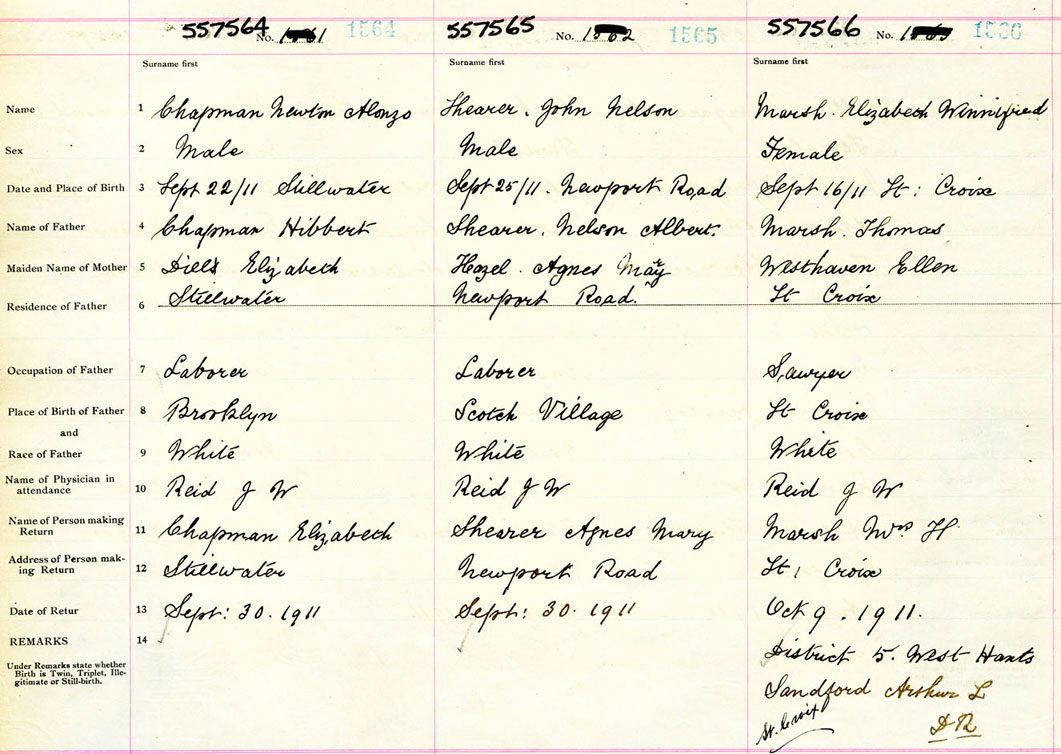 557564 No. 1564
557565 No. 1565
557566 No. 1566
Surname first Surname first Surname first
Name 1 Chapman Newton Alonzo Shearer. John Nelson Marsh. Elizabeth Winnifred
Sex 2 Male Male Female
Date and Place of Birth 3 Sept 22/11 Stillwater Sept 25/11. Newport Road Sept 16/11 St: Croix
Name of Father 4 Chapman Hibbert Shearer. Nelson Albert. Marsh. Thomas
Maiden Name of Mother 5 Elizabeth Hazel. Agnes Mary Westhaven Ellen
Residence of Father 6 Stillwater Newport Road. St Croix
Occupation of Father 7 Laborer Laborer Sawyer
Place of Birth of Father 8 Brooklyn Scotch Village St Croix
and
Race of Father 9 White White White
Name of Physician in
attendance 10 Reid J W Reid J W Reid J W
Name of Person making
Return 11 Chapman Elizabeth Shearer Agnes Mary Marsh Mrs H
Address of Person mak-
ing Return 12 Stillwater Newport Road St, Croix
Date of Retur 13 Sept: 30. 1911 Sept: 30. 1911 Oct 9. 1911.
REMARKS 14
District 5. West Hants
Under Remarks state whether
Birth is Twin, Triplet, Ille-
gitimate or Still-birth.
Sandford Arthur L
St. Croix D R